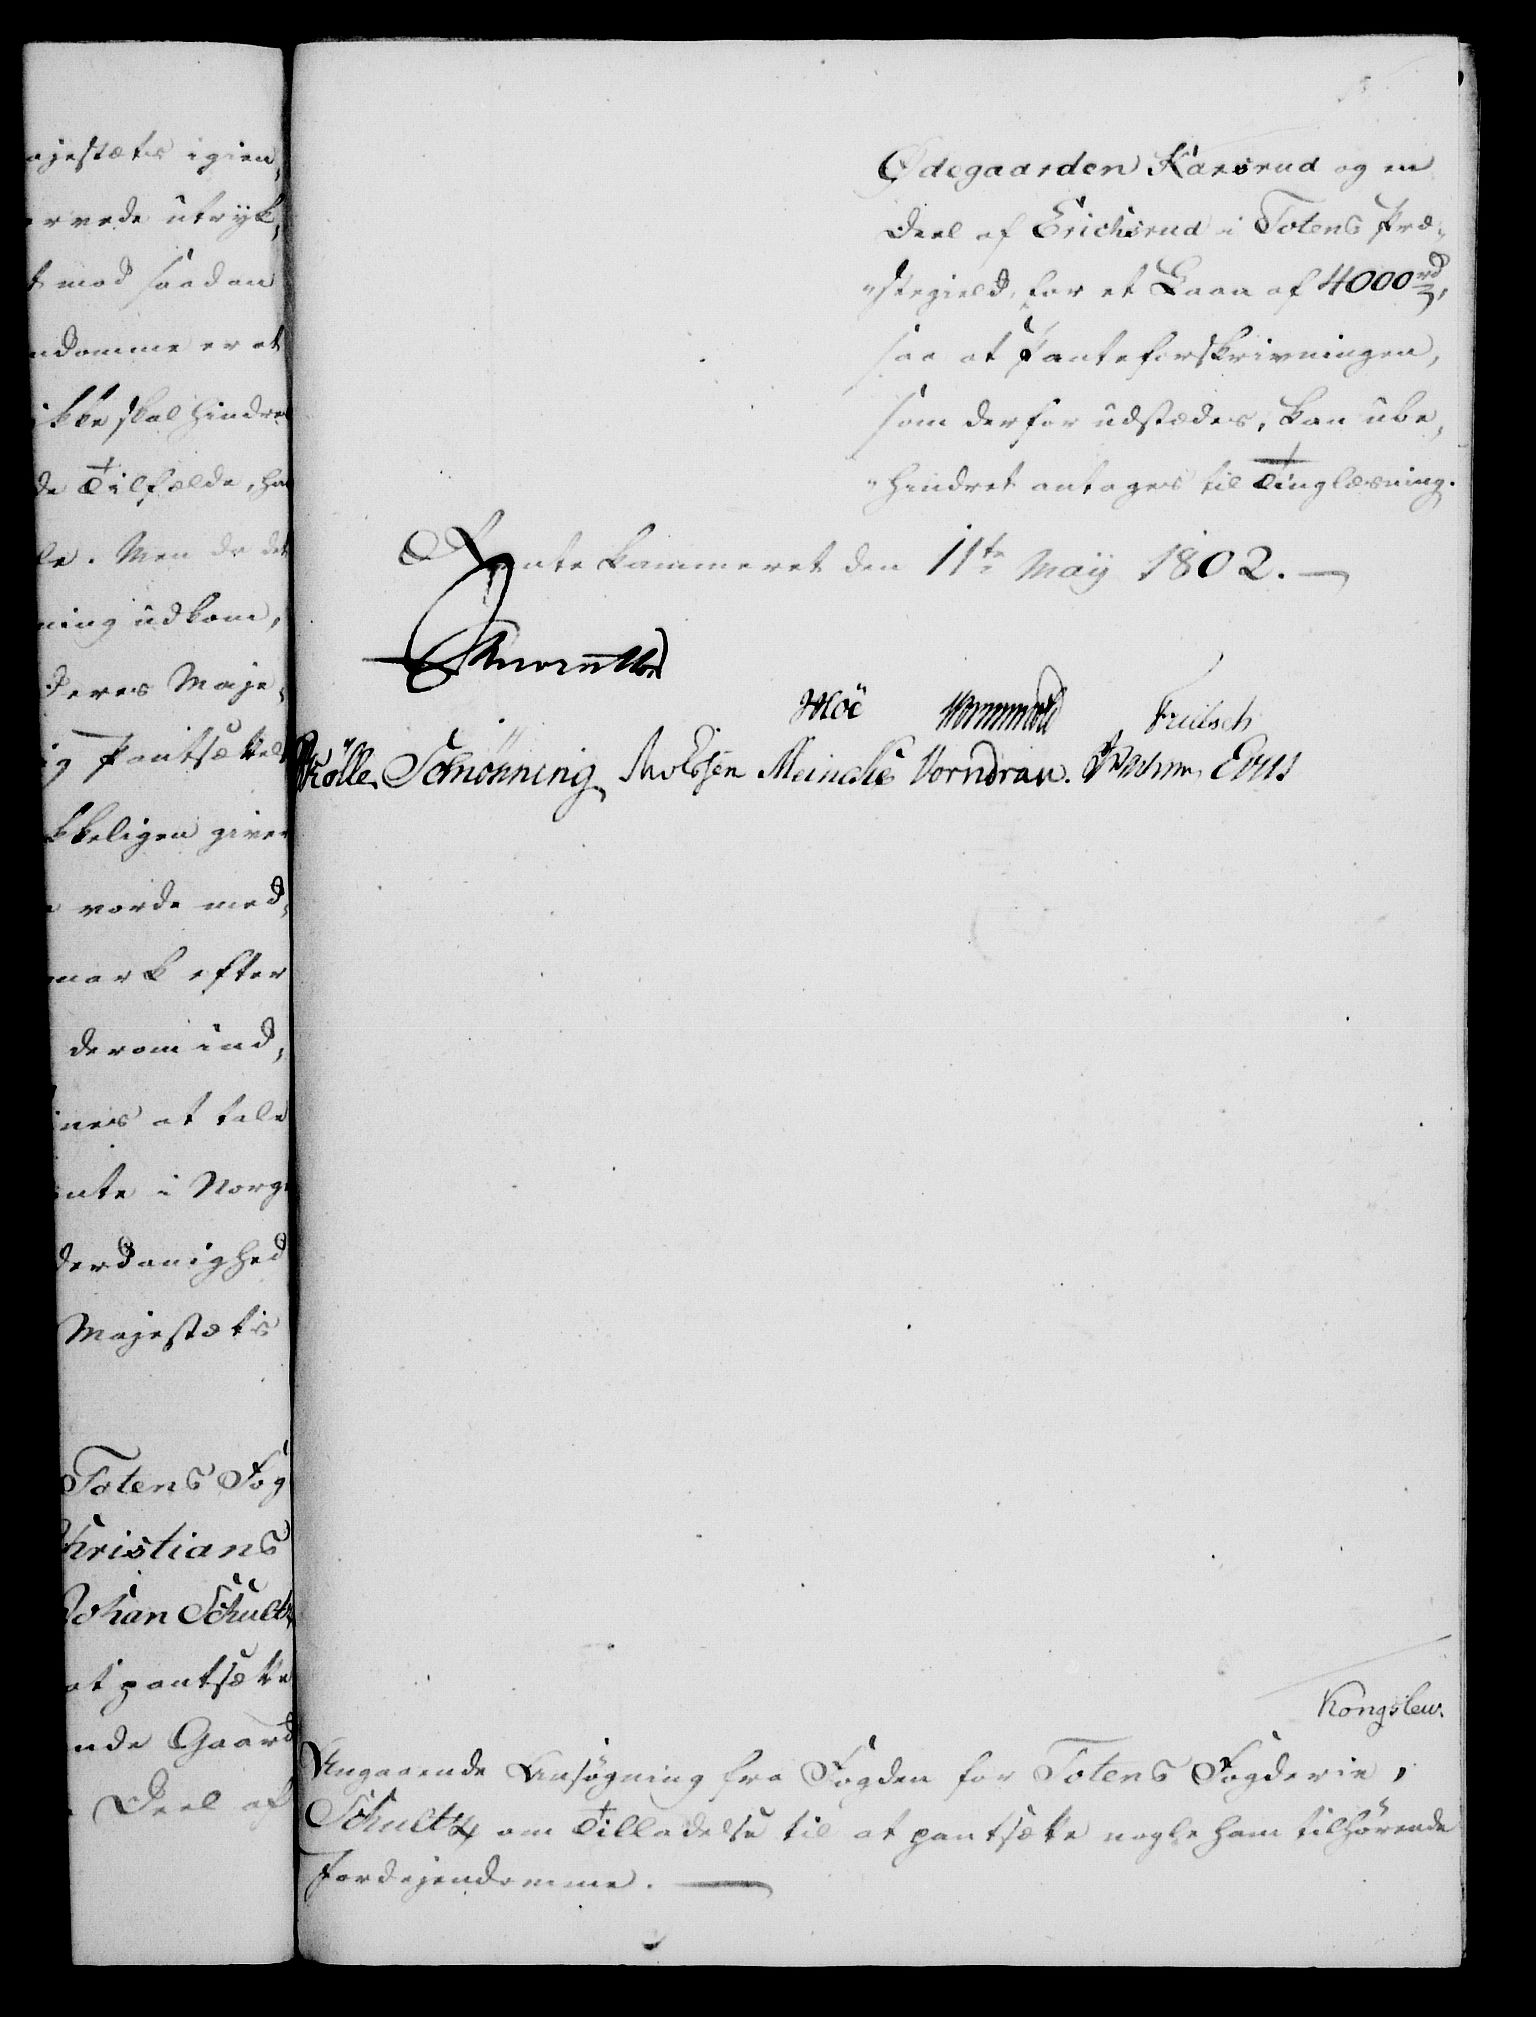 ajestæts igien,
ervede udtryk,
t mod saadan
ndomme er at
ikke skal hindre
de Tilfælde, ha
le. Men da det
ning udkom,
Deres Maje,
ig Pantsættel
kkeligen given
vorde med,
mark efter
derom ind,
ines at tale
nte i Norge
derdanighed
Majestæts
Totens Fog
Christians
Johan Schultz
at pantsætte
nde Gaard
Deel af
Ødegaarden Karsrud og en
Deel af Erichsrud i Totens Præ,
„stegield, for et Laan af 4000 rd,
saa at Panteforskrivningen,
som derfor udstædes, kan ube,
„hindret antages til Tinglæsning.
Rentekammeret den 11te Maÿ 1802.
Moë Wormskiold Frülsch
Kölle Schiönning Meinche Vorndran.
Kongslew.
Angaaende Ansøgning fra Fogden for Totens Fogderie,
Schultz om Tilladelse til at pantsætte nogle ham tilhørende
Jordejendomme.